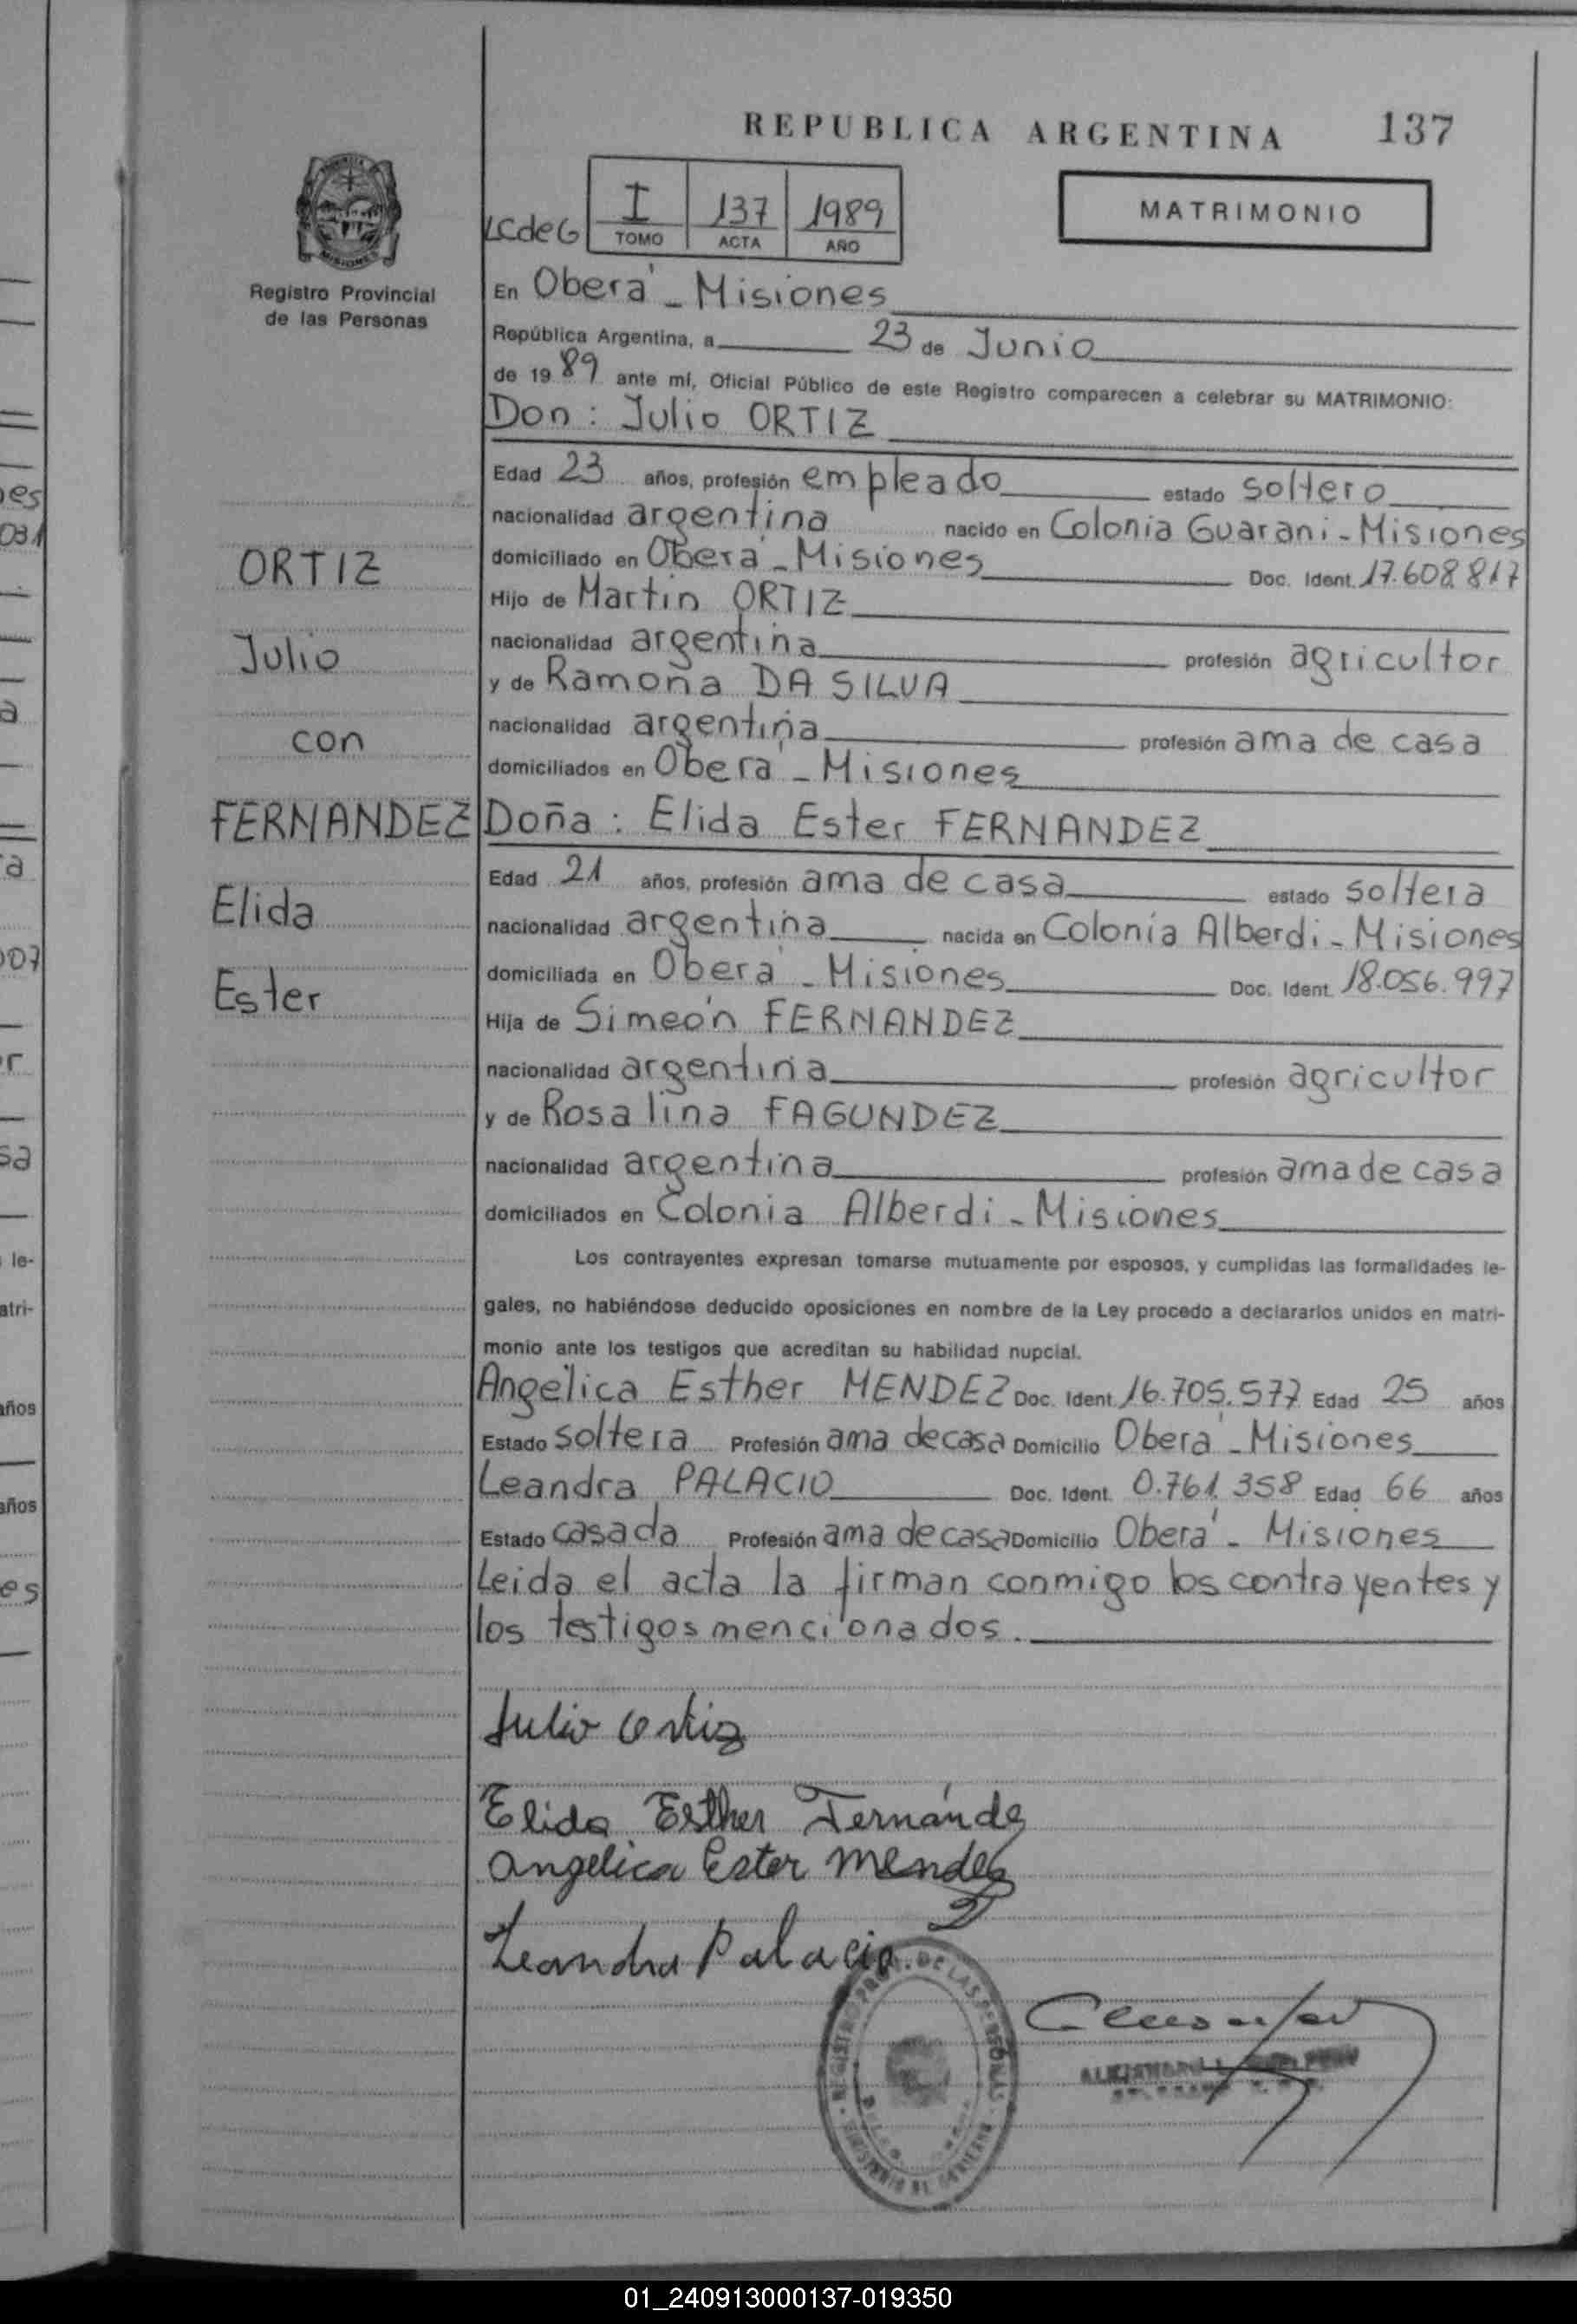 REPUBLICA ARGENTINA 137
LCdeG I 137 1989
TOMO ACTA AÑO
MATRIMONIO
Registro Provincial
de las Personas
En Oberá - Misiones
República Argentina, a 23 de Junio
de 1989 ante mí, Oficial Público de este Registro comparecen a celebrar su MATRIMONIO:
Don: Julio ORTIZ
Edad 23 años, profesión empleado estado soltero
nacionalidad argentina nacido en Colonia Guarani - Misiones
domiciliado en Oberá - Misiones Doc. Ident. 17.608.817
ORTIZ
Hijo de Martin ORTIZ
nacionalidad argentina profesión agricultor
Julio
y de Ramona DA SILVA
nacionalidad argentina profesión ama de casa
con
domiciliados en Oberá - Misiones
FERNANDEZ
Doña: Elida Ester FERNANDEZ
Edad 21 años, profesión ama de casa estado soltera
Elida
nacionalidad argentina nacida en Colonia Alberdi - Misiones
domiciliada en Oberá - Misiones Doc. Ident. 18.056.997
Ester
Hija de Simeón FERNANDEZ
nacionalidad argentina profesión agricultor
y de Rosalina FAGUNDEZ
nacionalidad argentina profesión ama de casa
domiciliados en Colonia Alberdi - Misiones
Los contrayentes expresan tomarse mutuamente por esposos, y cumplidas las formalidades le-
gales, no habiéndose deducido oposiciones en nombre de la Ley procedo a declararlos unidos en matri-
monio ante los testigos que acreditan su habilidad nupcial.
Angélica Esther MENDEZ Doc. Ident. 16.705.577 Edad 25 años
Estado soltera Profesión ama de casa Domicilio Oberá - Misiones
Leandra PALACIO Doc. Ident. 0.761.358 Edad 66 años
Estado casada Profesión ama de casa Domicilio Oberá - Misiones
Leida el acta la firman conmigo los contrayentes y
los testigos mencionados.
Julio Ortiz
Elida Esther Fernández
Angelica Ester Mendez
Leandra Palacio
REGISTRO PROV. DE LAS PERSONAS
01_240913000137-019350